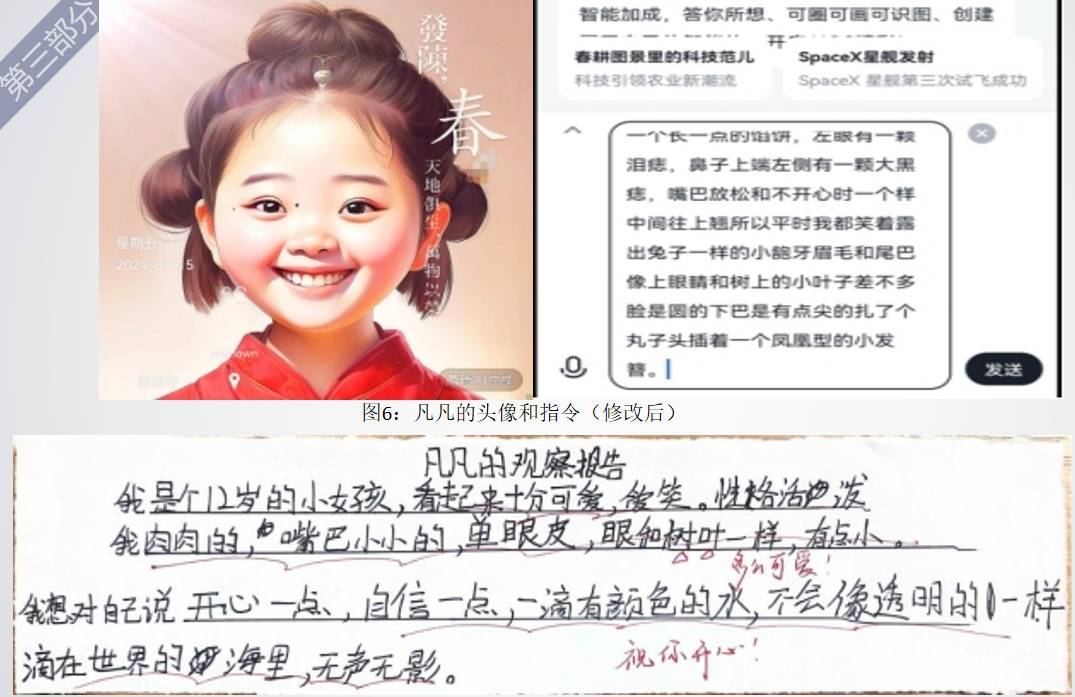 第三部分
發陳
春
天地俱生,萬物以榮
星期五
智能加成,答你所想、可圈可画可识图、创建
春耕图景里的科技范儿
科技引领农业新潮流
SpaceX星舰发射
SpaceX 星舰第三次试飞成功
一个长一点的馅饼,左眼有一颗
泪痣,鼻子上端左侧有一颗大黑
痣,嘴巴放松和不开心时一个样
中间往上翘所以平时我都笑着露
出兔子一样的小龅牙眉毛和尾巴
像上眼睛和树上的小叶子差不多
脸是圆的下巴是有点尖的扎了个
丸子头插着一个凤凰型的小发
簪。
发送
图6:凡凡的头像和指令(修改后)
凡凡的观察报告
我是个12岁的小女孩,看起来十分可爱,爱笑。性格活泼
我肉肉的,嘴巴小小的,单眼皮,眼和树叶一样,有点小。
多么可爱!
我想对自己说 开心一点,自信一点,一滴有颜色的水,不会像透明的一样
滴在世界的海里,无声无影。
祝你开心!